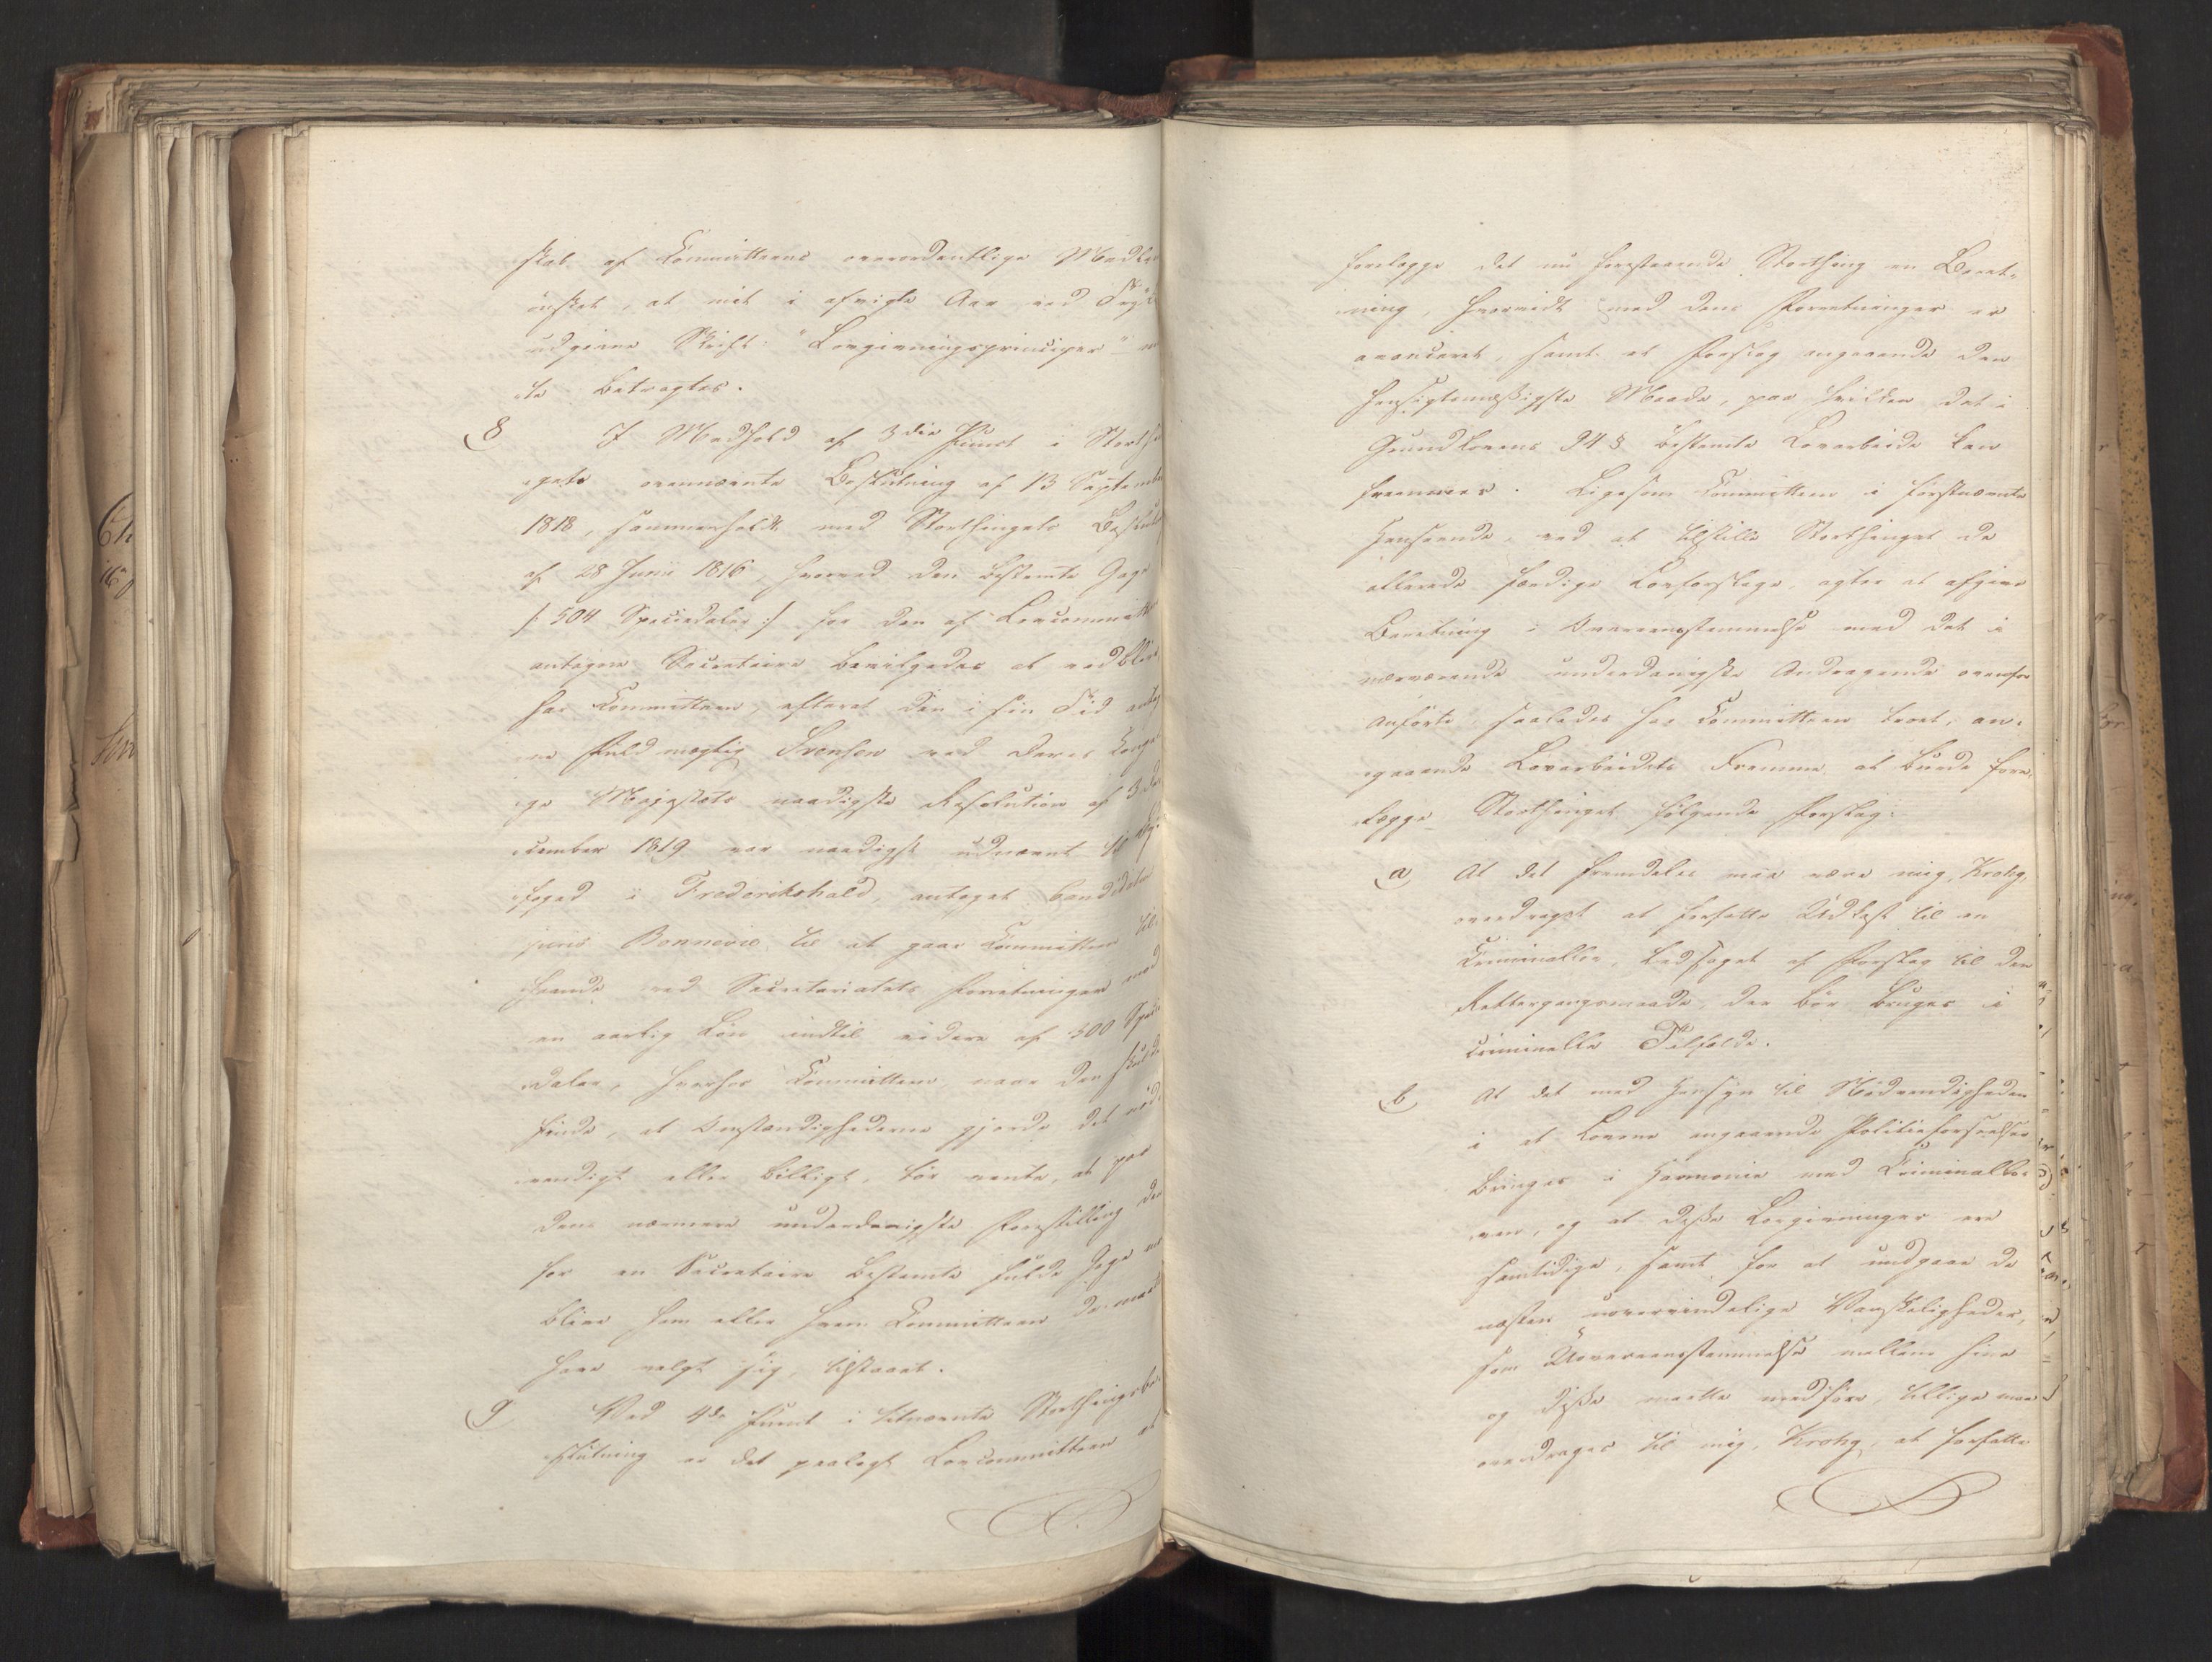 skab af Committeens overordentlige Medlem
ønsket, at mit i afvigte Aar ved Tryk
udgivne Skrift: "Lovgivningsprinciper"
te Betragtes.
8 I Medhold af 3die Punct i Storthin
gets ovennævnte Beslutning af 13 September
1818, sammenholdt med Storthingets Beslut
af 28 Junii 1816, hvorved den bestemte Gage
/: 504 Speciedaler :/ for den af Lovcommitteen
antagne Secretaire bevilgedes at vedblive,
har Committeen, efterat den i sin Tid antag
ne Fuldmægtig Svensen ved Deres Konge
ge Majestæts naadigste Resolution af 3 De
cember 1819 var naadigst udnævnt til By
foged i Frederikshald, antaget Candidatus
juris Bonnevie til at gaae Committeen til
Haande ved Secretariatets Forretninger mod
en aarlig Løn indtil videre af 300 Specie
daler, hvorhos Committeen, naar den skulde
finde, at Omstændighederne gjorde det nød
vendigt eller billigt, tør vente, at paa
dens nærmere underdanigste Forestilling den
for en Secretaire bestemte fulde Gage maa
blive ham eller hvem Committeen da maatte
have valgt sig, tilstaaet.
9 Ved 4de Punct i bemeldte Storthingsbe
slutning er det paalagt Lovcommitteen at
forelægge det nu forestaaende Storthing en Beret-
ning, hvorvidt med dens Forretninger er
avanceret, samt et Forslag angaaende den
hensigtsmæssigste Maade, paa hvilken det i
Grundlovens 94 § bestemte Lovarbeide kan
fremmes. Ligesom Committeen i førstnævnte
Henseende, ved at tilstille Storthinget de
allerede færdige Lovforslage, agter at afgive
Beretning i Overeensstemmelse med det i
nærværende underdanigste Andragende ovenfor
Anførte, saaledes har Committeen troet, an-
gaaende Lovarbeidets Fremme at burde fore-
lægge Storthinget følgende Forslag:
a At det fremdeles maa være mig, Krohg,
overdraget at forfatte Udkast til en
Criminallov, ledsaget af Forslag til den
Rettergangsmaade, der bør bruges i
criminelle Tilfælde.
b At det med Hensyn til Nødvendigheden
i at Lovene angaaende Politieforseelser
bringes i Harmonie med Criminallo-
ven, og at disse Lovgivninger ere
samtidige, samt for at undgaae de
næsten uovervindelige Vanskeligheder,
som Uovereensstemmelse mellem hine
og disse maatte medføre, tillige maa
overdrages til mig, Krohg, at forfatte